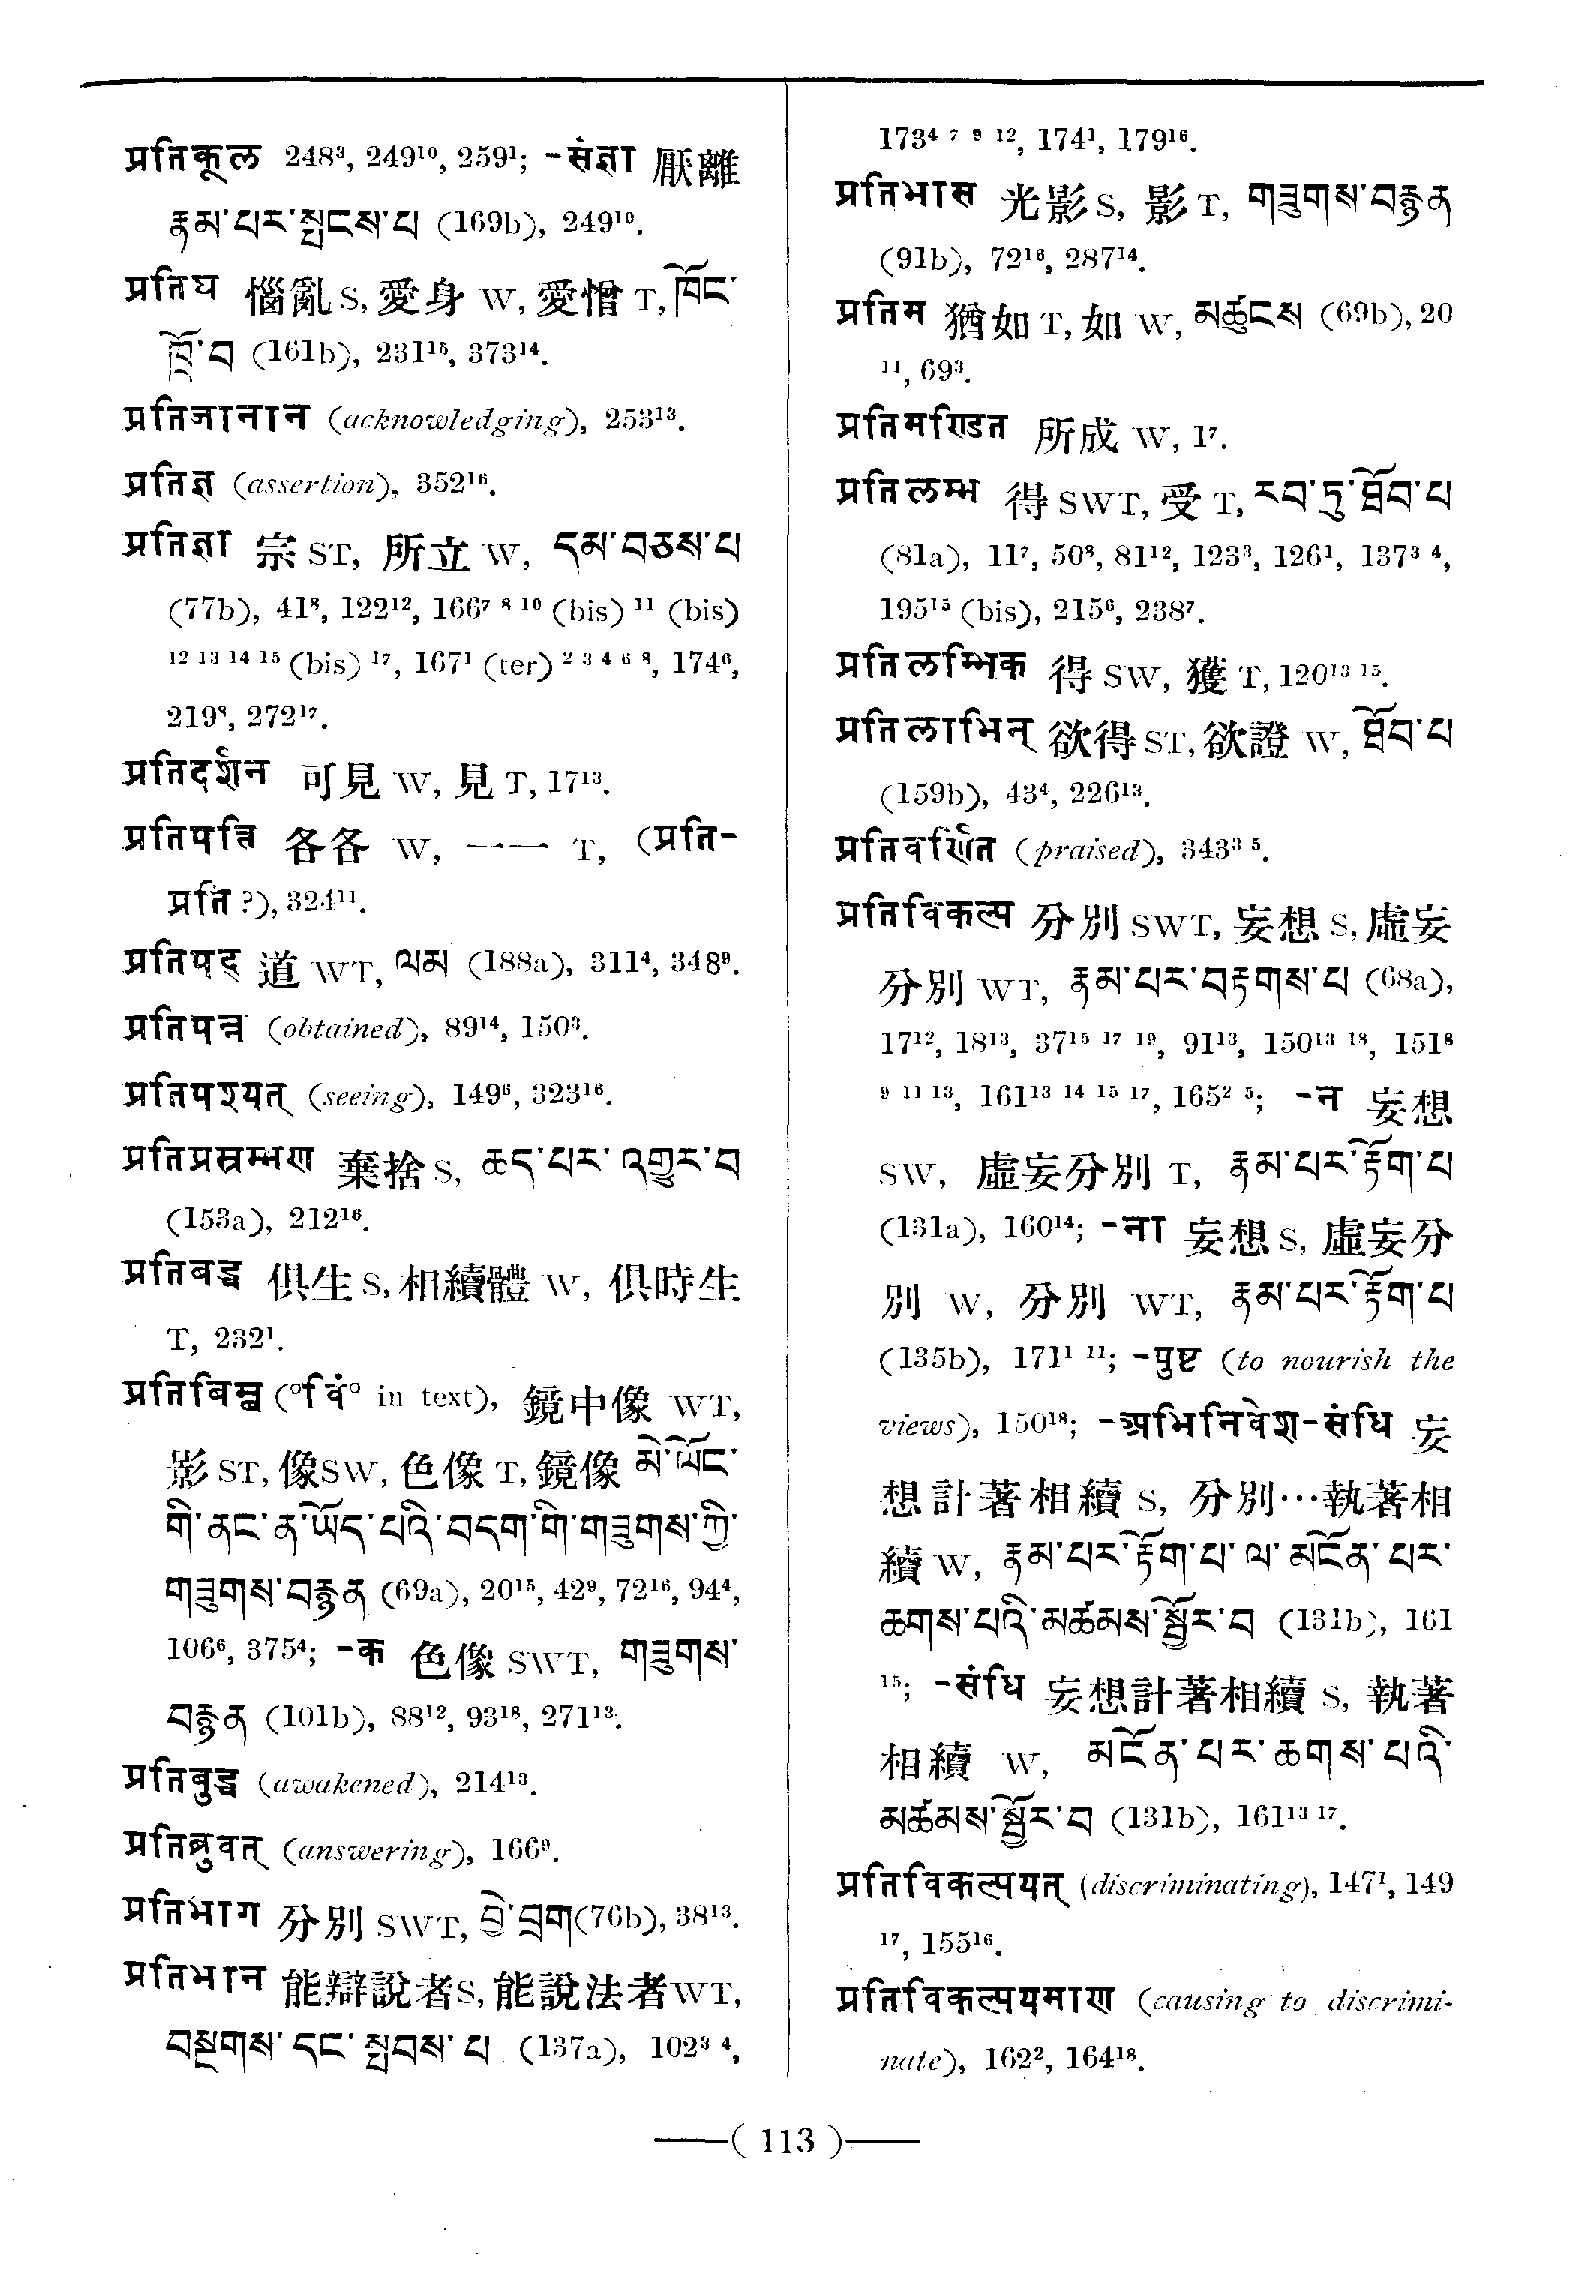 प्रतिकूल 248³, 249¹⁰, 259¹; -संज्ञा 厭離
རྣམ་པར་སྤངས་པ (169b), 249¹⁰.
प्रतिघ 惱亂 S, 愛身 W, 愛憎 T, ཁོང་
ཁྲོ་བ (161b), 231¹⁵, 373¹⁴.
प्रतिजानान (acknowledging), 253¹³.
प्रतिज्ञ (assertion), 352¹⁶.
प्रतिज्ञा 宗 ST, 所立 W, དམ་བཅས་པ
(77b), 41⁸, 122¹², 166⁷ ⁸ ¹⁰ (bis) ¹¹ (bis)
¹² ¹³ ¹⁴ ¹⁵ (bis) ¹⁷, 167¹ (ter) ² ³ ⁴ ⁶ ⁸, 174⁶,
219⁸, 272¹⁷.
प्रतिदर्शन 可見 W, 見 T, 17¹³.
प्रतिपत्ति 各各 W, 一一 T, (प्रति-
प्रति ?), 324¹¹.
प्रतिपद् 道 WT, ལམ (188a), 311⁴, 348⁹.
प्रतिपन्न (obtained), 89¹⁴, 150³.
प्रतिपश्यत् (seeing), 149⁶, 323¹⁶.
प्रतिप्रस्रम्भण 棄捨 S, ཆད་པར་འགྱུར་བ
(153a), 212¹⁶.
प्रतिबद्ध 俱生 S, 相續體 W, 俱時生
T, 232¹.
प्रतिबिम्ब (°विं° in text), 鏡中像 WT,
影 ST, 像 SW, 色像 T, 鏡像 མེ་ཡོང་
གི་ནང་ན་ཡོད་པའི་བདག་གི་གཟུགས་ཀྱི་
གཟུགས་བརྙན (69a), 20¹⁵, 42⁹, 72¹⁶, 94⁴,
106⁶, 375⁴; -क 色像 SWT, གཟུགས་
བརྙན (101b), 88¹², 93¹⁸, 271¹³.
प्रतिबुद्ध (awakened), 214¹³.
प्रतिब्रुवत् (answering), 166⁹.
प्रतिभाग 分別 SWT, བྱེ་བྲག (76b), 38¹³.
प्रतिभान 能辯說者 S, 能說法者 WT,
བསྔགས་དང་སྤབས་པ (137a), 102³ ⁴,
173⁴ ⁷ ⁹ ¹², 174¹, 179¹⁶.
प्रतिभास 光影 S, 影 T, གཟུགས་བརྙན
(91b), 72¹⁶, 287¹⁴.
प्रतिम 猶如 T, 如 W, མཚུངས (69b), 20
¹¹, 69³.
प्रतिमण्डित 所成 W, 1⁷.
प्रतिलम्भ 得 SWT, 受 T, རབ་ཏུ་ཐོབ་པ
(81a), 11⁷, 50⁸, 81¹², 123³, 126¹, 137³ ⁴,
195¹⁵ (bis), 215⁶, 238⁷.
प्रतिलम्भिक 得 SW, 獲 T, 120¹³ ¹⁵.
प्रतिलाभिन् 欲得 ST, 欲證 W, ཐོབ་པ
(159b), 43⁴, 226¹³.
प्रतिवर्णित (praised), 343³ ⁵.
प्रतिविकल्प 分別 SWT, 妄想 S, 虛妄
分別 WT, རྣམ་པར་བརྟགས་པ (68a),
17¹², 18¹³, 37¹⁵ ¹⁷ ¹⁹, 91¹³, 150¹³ ¹⁸, 151⁸
⁹ ¹¹ ¹³, 161¹³ ¹⁴ ¹⁵ ¹⁷, 165² ⁵; -न 妄想
SW, 虛妄分別 T, རྣམ་པར་རྟོག་པ
(131a), 160¹⁴; -ना 妄想 S, 虛妄分
別 W, 分別 WT, རྣམ་པར་རྟོག་པ
(135b), 171¹ ¹¹; -पुष्ट (to nourish the
views), 150¹⁸; -अभिनिवेश-संधि 妄
想計著相續 S, 分別…執著相
續 W, རྣམ་པར་རྟོག་པ་ལ་མངོན་པར་
ཆགས་པའི་མཚམས་སྦྱོར་བ (131b), 161
¹⁵; -संधि 妄想計著相續 S, 執著
相續 W, མངོན་པར་ཆགས་པའི་
མཚམས་སྦྱོར་བ (131b), 161¹³ ¹⁷.
प्रतिविकल्पयत् (discriminating), 147¹, 149
¹⁷, 155¹⁶.
प्रतिविकल्पयमाण (causing to discrimi-
nate), 162², 164¹⁸.
( 113 )